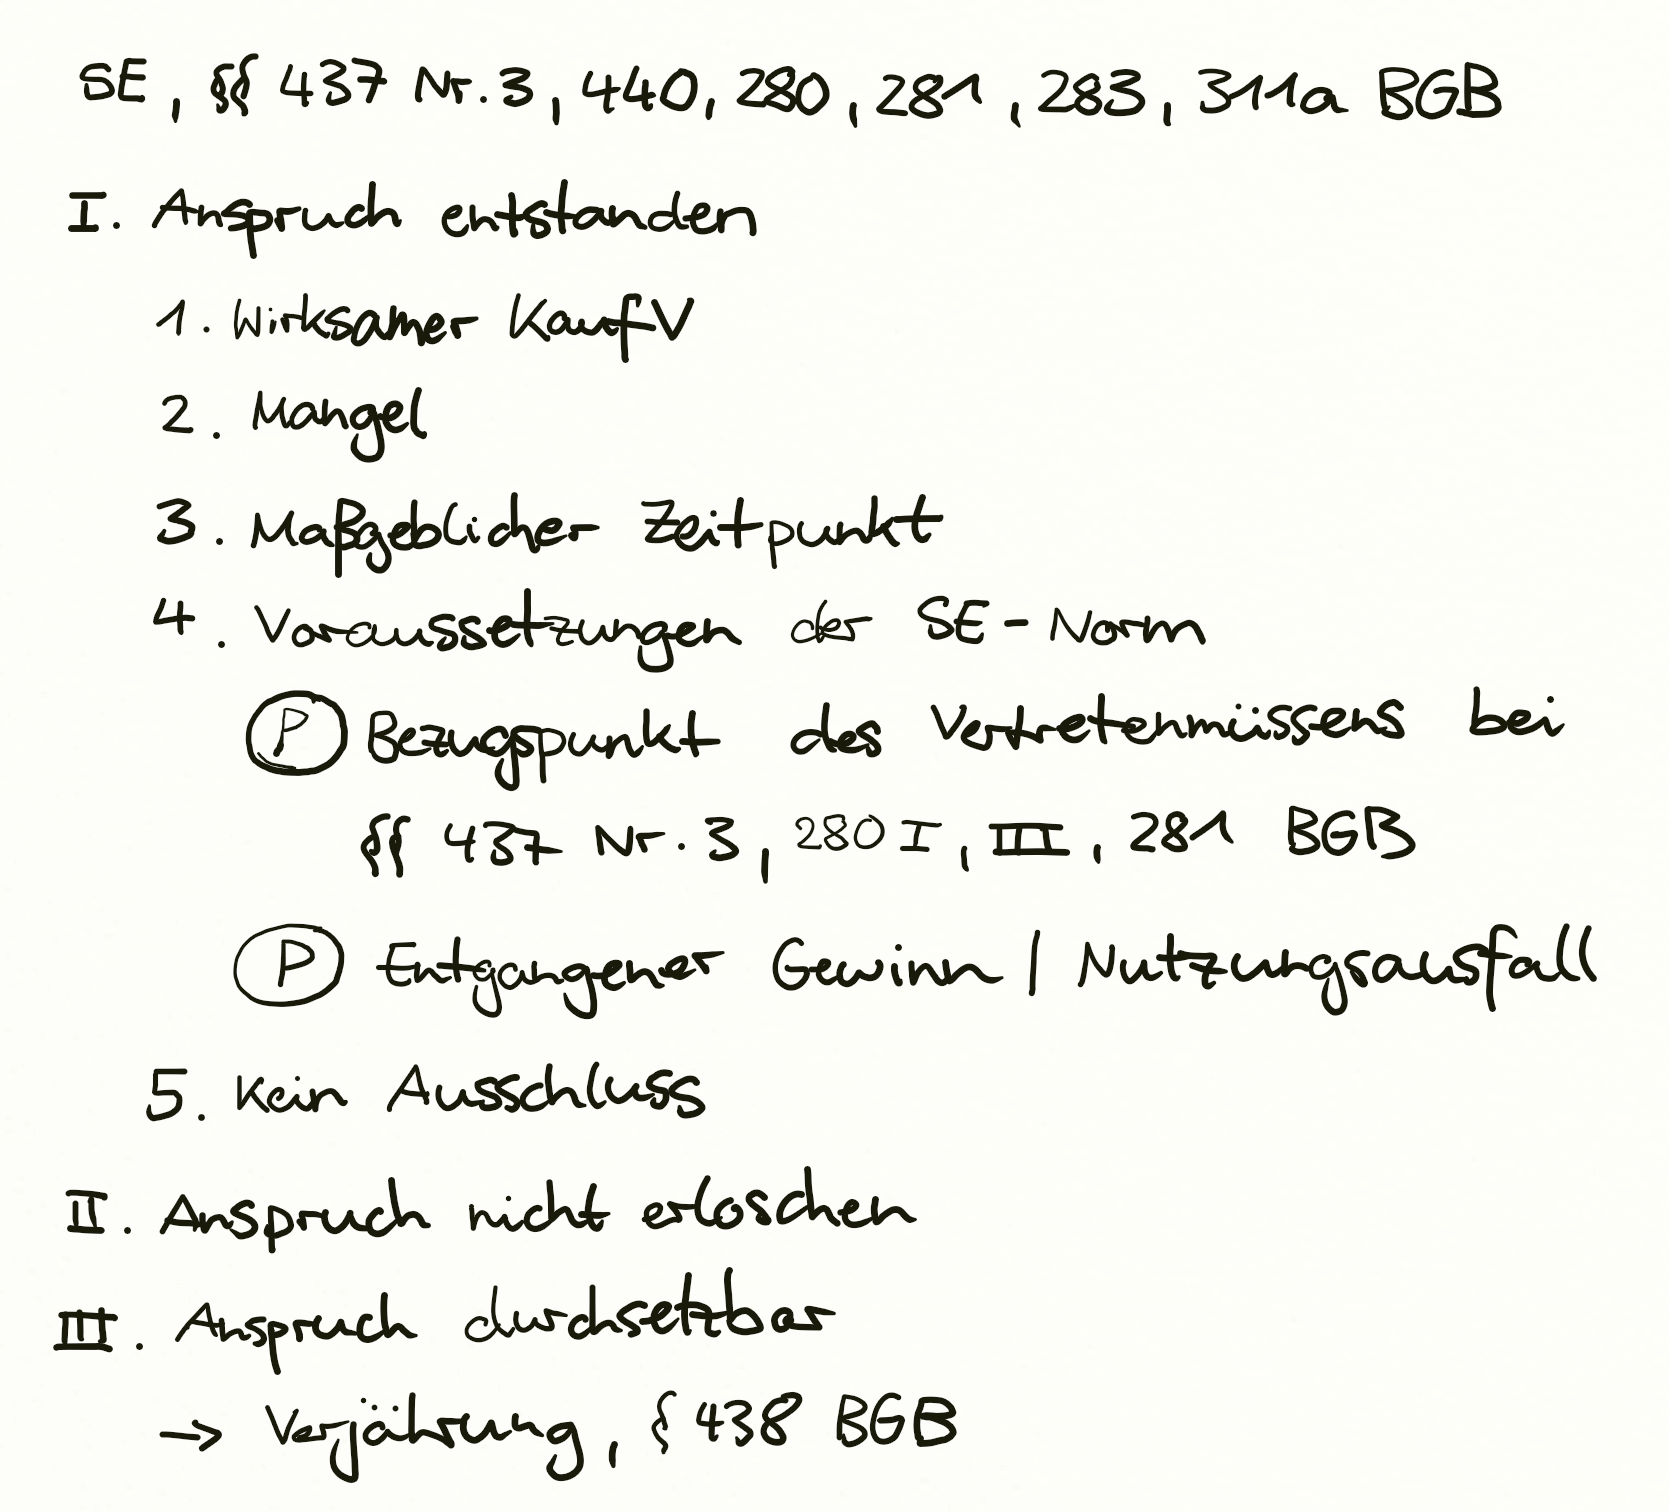 SE, §§ 437 Nr. 3, 440, 280, 281, 283, 311a BGB
I. Anspruch entstanden
1. Wirksamer KaufV
2. Mangel
3. Maßgeblicher Zeitpunkt
4. Voraussetzungen der SE-Norm
Ⓟ Bezugspunkt des Vertretenmüssens bei
§§ 437 Nr. 3, 280 I, III, 281 BGB
Ⓟ Entgangener Gewinn / Nutzungsausfall
5. Kein Ausschluss
II. Anspruch nicht erloschen
III. Anspruch durchsetzbar
→ Verjährung, § 438 BGB